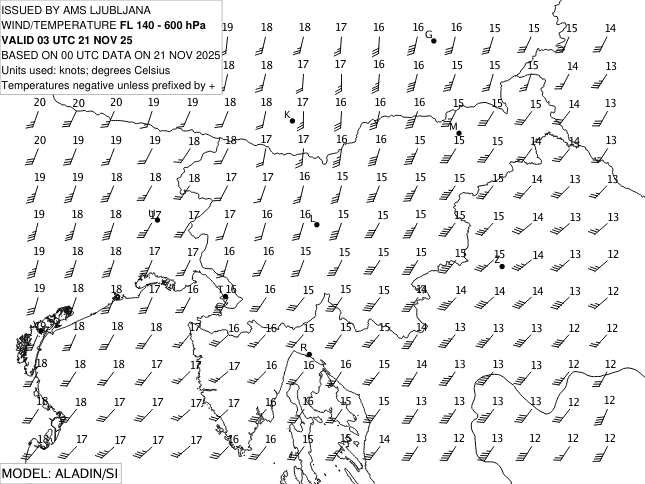 ISSUED BY AMS LJUBLJANA
WIND/TEMPERATURE FL 140 - 600 hPa
VALID 03 UTC 21 NOV 25
BASED ON 00 UTC DATA ON 21 NOV 2025
Units used: knots; degrees Celsius
Temperatures negative unless prefixed by +
19 18 18 17 16 16 16 15 15 15 14
G
18 18 17 17 16 16 15 15 14 13
20 20 20 19 19 18 18 17 16 16 16 15 15 15 14 13
K
M
20 19 19 19 18 18 17 17 16 16 15 15 15 14 14 13
19 19 18 18 18 17 17 16 16 15 15 15 15 14 13 13
19 18 18 17 17 17 16 16 15 15 15 15 15 14 13 13
U
L
19 18 18 17 17 16 16 15 15 15 15 15 15 14 13 12
Z
19 18 18 17 16 16 16 15 15 15 14 14 14 14 13 12
T
18 18 18 17 16 16 15 15 15 14 13 13 13 12 12
R
18 18 18 17 17 16 16 16 15 14 13 13 13 12 12
18 18 17 17 17 16 16 15 15 13 13 12 12 12
18 17 17 17 17 16 16 15 15 14 13 12 13 12 12 12
MODEL: ALADIN/SI